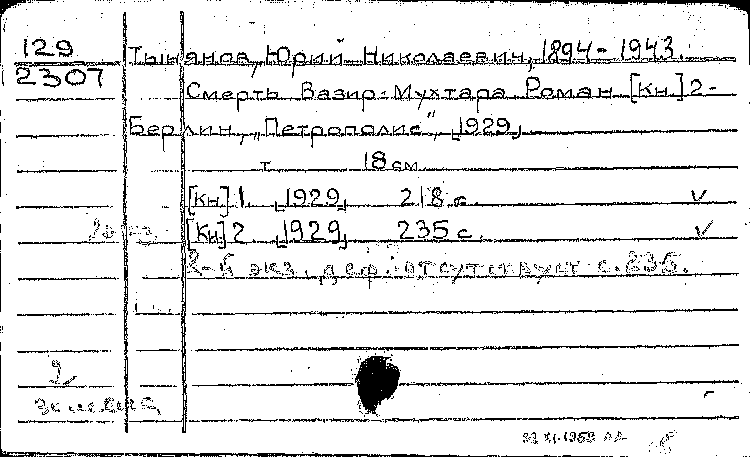 129
2307
Тынянов, Юрий Николаевич, 1894-1943.
Смерть Вазир-Мухтара Роман [Кн] 2-
Берлин, „Петрополис", 1929,
т 18 см
[Кн] 1. 1929 218 с.
2 экз. [Кн.] 2 1929 235 с.
2-й экз. деф.: отсутствует с. 235.
2